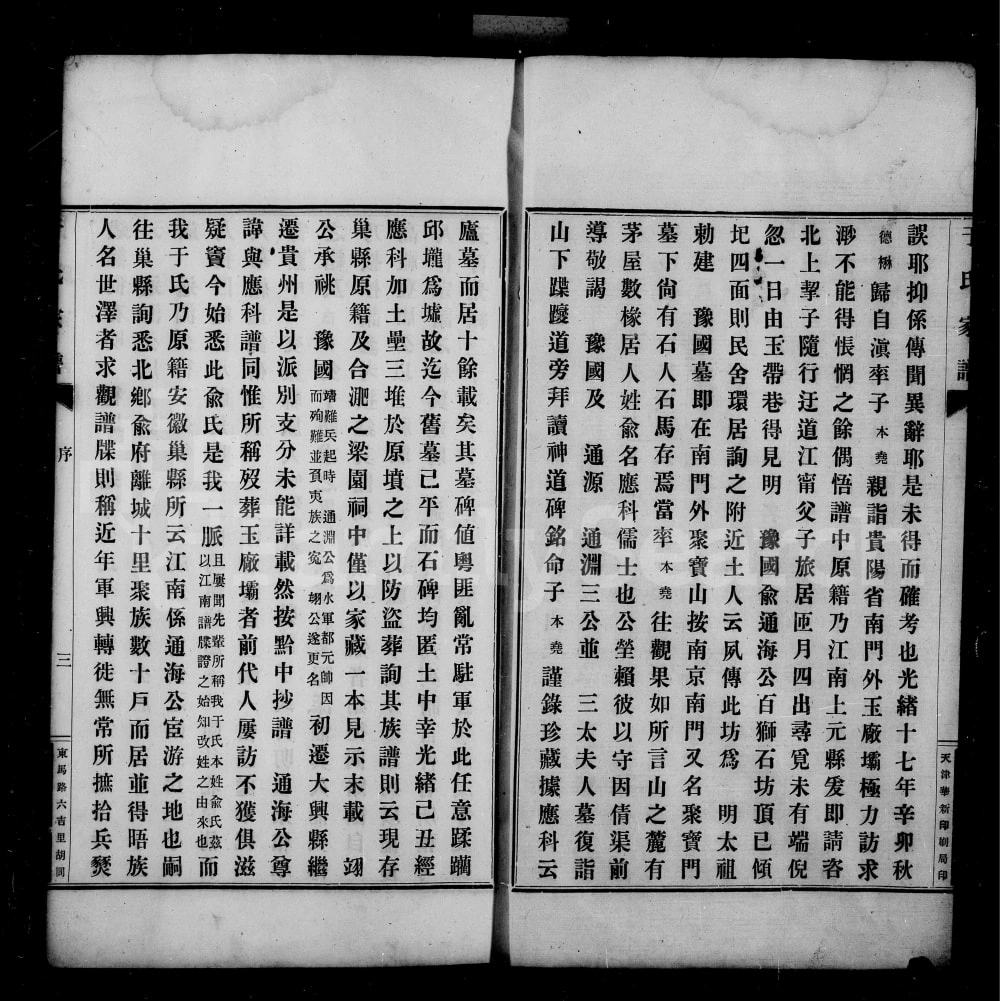 于氏家譜
天津華新印刷局印
誤耶抑係傳聞異辭耶是未得而確考也光緒十七年辛卯秋
德楙歸自滇率子本堯親詣貴陽省南門外玉廠壩極力訪求
渺不能得悵惘之餘偶悟譜中原籍乃江南上元縣爰即請咨
北上挈子隨行迂道江甯父子旅居匝月四出尋覓未有端倪
忽一日由玉帶巷得見明 豫國俞通海公百獅石坊頂已傾
圮四面則民舍環居詢之附近土人云夙傳此坊爲 明太祖
勅建 豫國墓即在南門外聚寶山按南京南門又名聚寶門
墓下尙有石人石馬存焉當率本堯往觀果如所言山之麓有
茅屋數椽居人姓俞名應科儒士也公塋賴彼以守因倩渠前
導敬謁 豫國及 通源 通淵三公並 三太夫人墓復詣
山下蹀躞道旁拜讀神道碑銘命子本堯謹錄珍藏據應科云
廬墓而居十餘載矣其墓碑値粵匪亂常駐軍於此任意蹂躪
邱壠爲墟故迄今舊墓已平而石碑均匿土中幸光緒己丑經
應科加土壘三堆於原墳之上以防盜葬詢其族譜則云現存
巢縣原籍及合淝之梁園祠中僅以家藏一本見示末載 翊
公承祧 豫國靖難兵起時 通淵公爲水軍都元帥因而殉難並頁夷族之寃 翊公遂更名初遷大興縣繼
遷貴州是以派別支分未能詳載然按黔中抄譜 通海公尊
諱與應科譜同惟所稱歿葬玉廠壩者前代人屢訪不獲俱滋
疑竇今始悉此俞氏是我一脈且屢聞先輩所稱我于氏本姓俞氏茲以江南譜牒證之始知改姓之由來也而
我于氏乃原籍安徽巢縣所云江南係通海公宦游之地也嗣
往巢縣詢悉北鄕俞府離城十里聚族數十戶而居並得晤族
人名世澤者求觀譜牒則稱近年軍興轉徙無常所摭拾兵燹
序
三
東馬路六吉里胡同